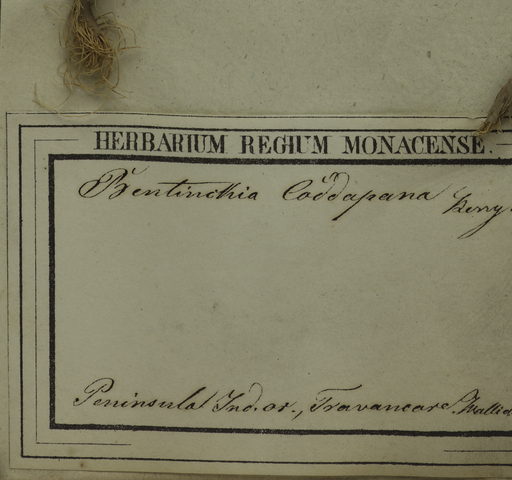 HERBARIUM REGIUM MONACENSE.
Bentinckia Coddapana Berry
Peninsula Ind. or., Travancore.